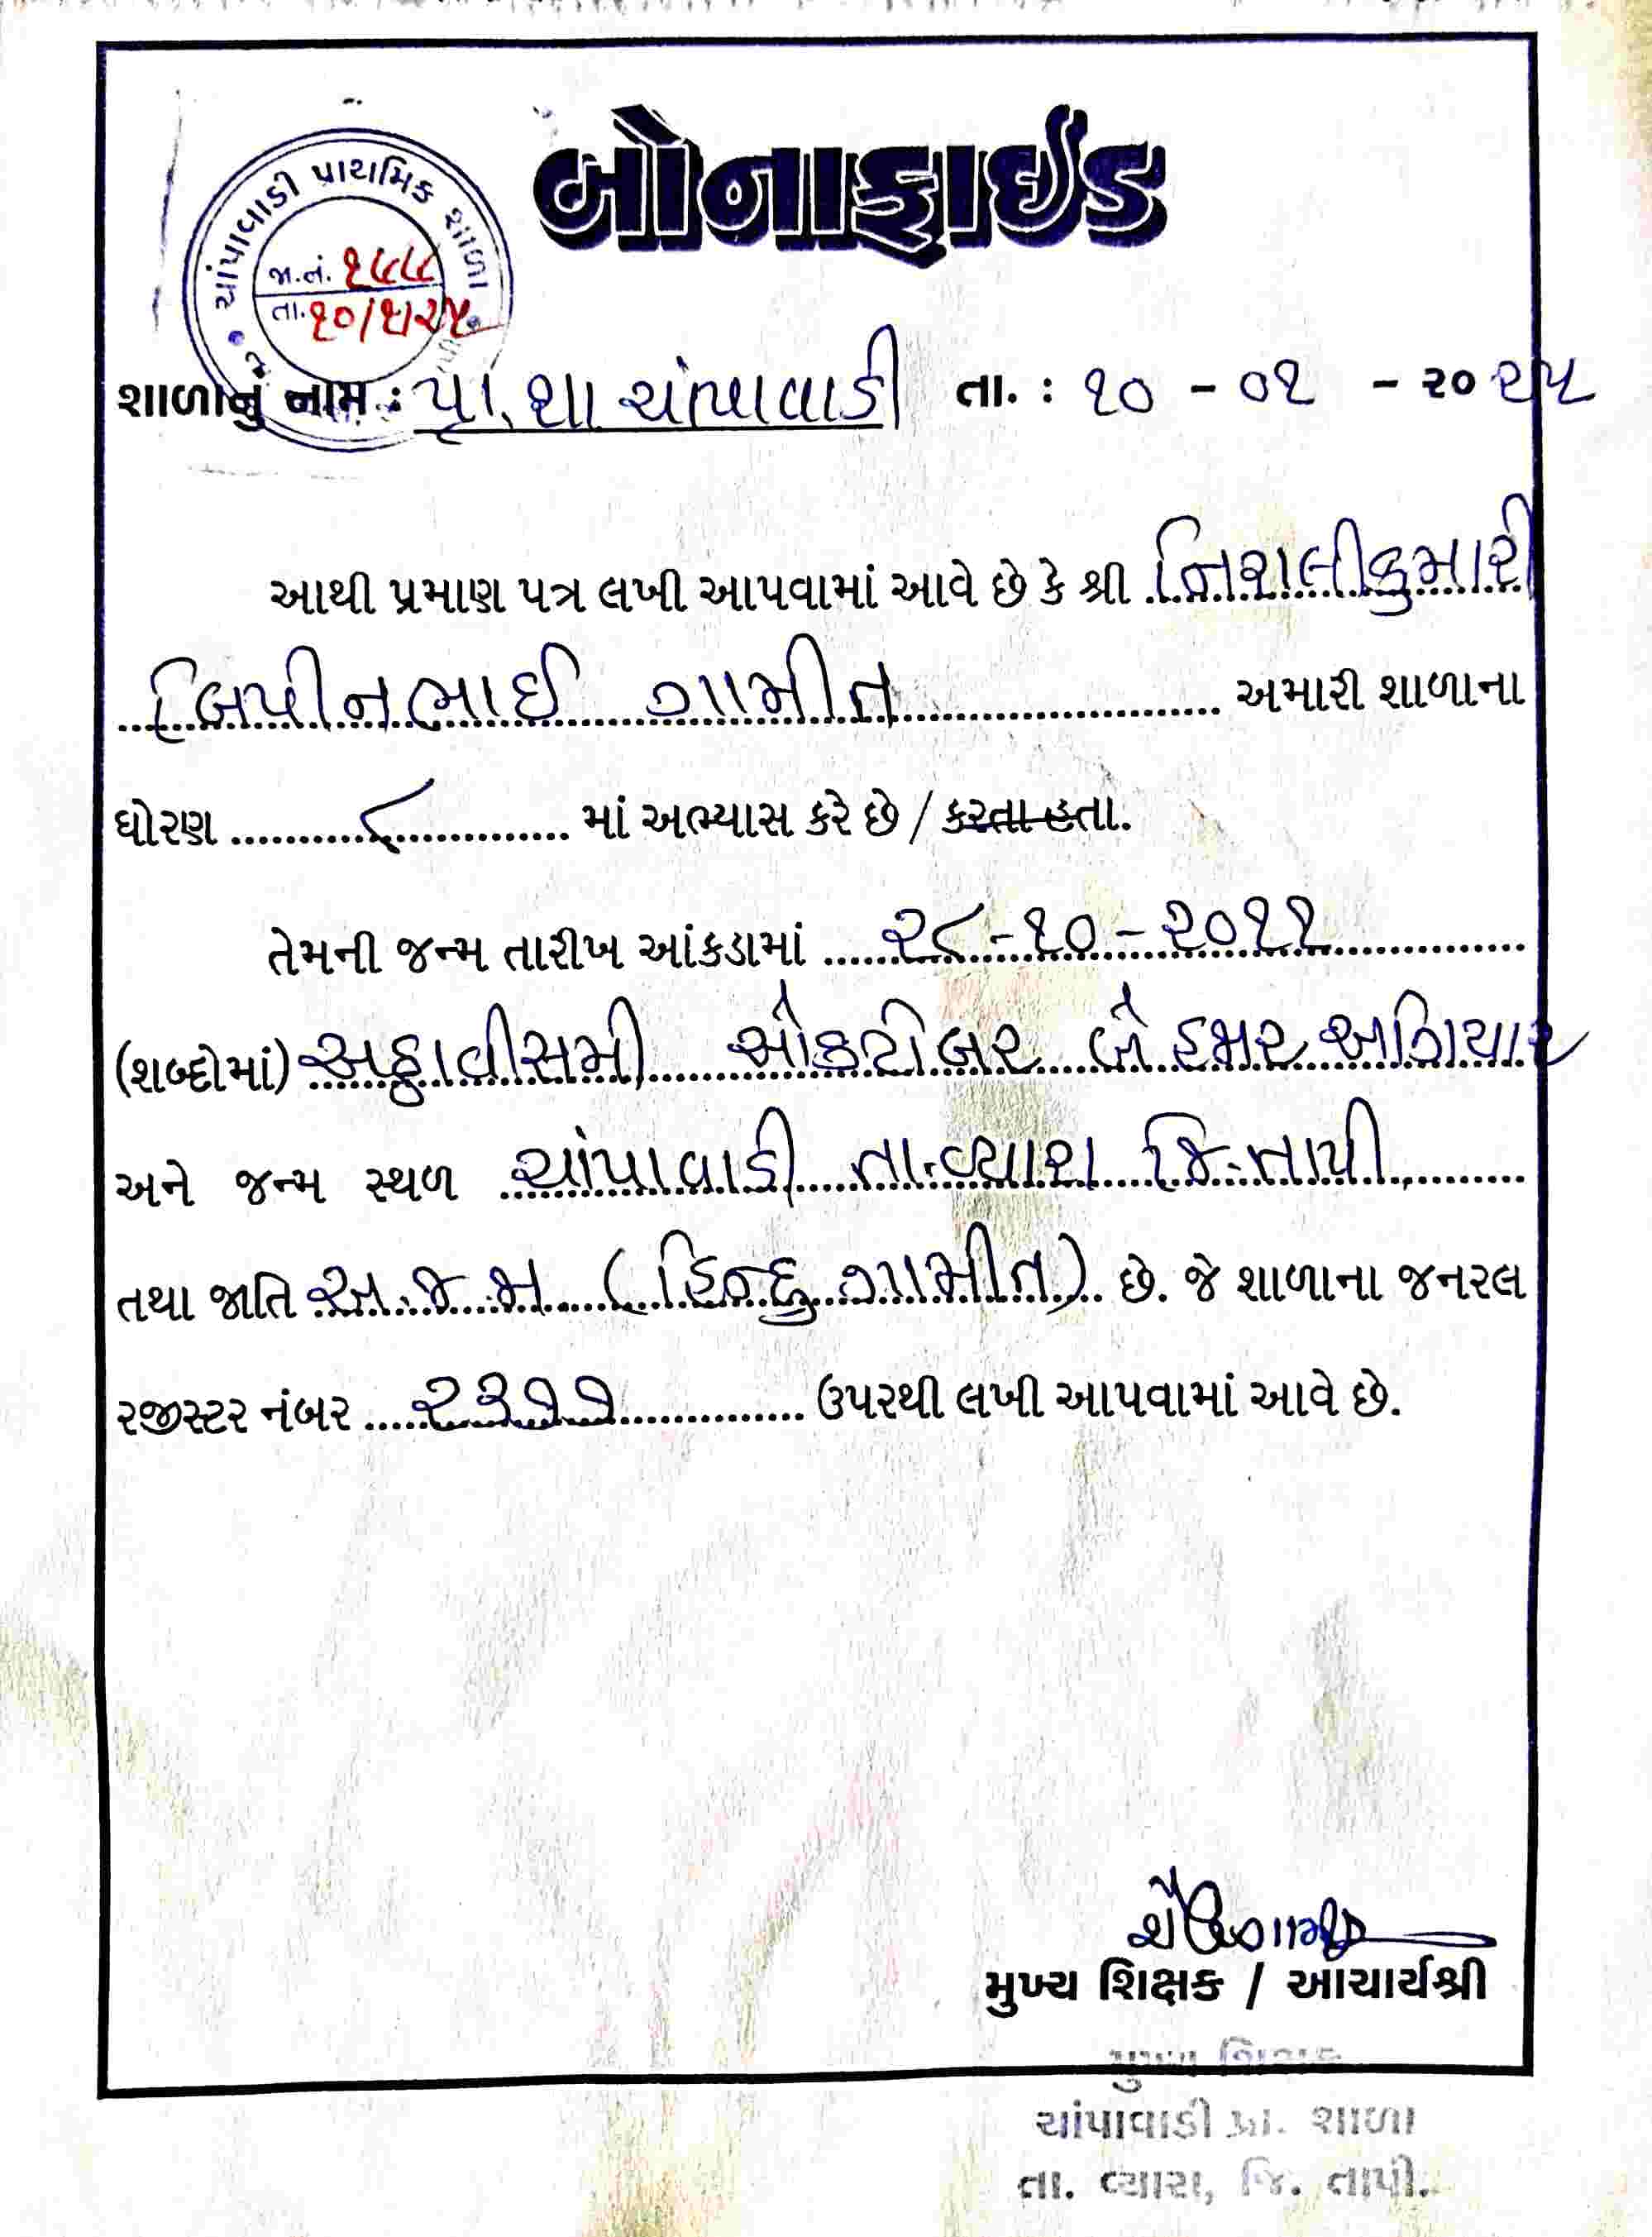 બોનાફાઈડ
ચાંપાવાડી પ્રાથમિક શાળા
જા.નં.
તા. ૧૦/૧/૨૫
શાળાનું નામ : પ્રા. શા ચાંપાવાડી તા. : ૧૦ - ૦૧ - ૨૦૨૫
આથી પ્રમાણ પત્ર લખી આપવામાં આવે છે કે શ્રી નિરાલીકુમારી
બિપીનભાઈ ગામીત અમારી શાળાના
ધોરણ ૮ માં અભ્યાસ કરે છે / કરતા હતા.
તેમની જન્મ તારીખ આંકડામાં ૨૮-૧૦-૨૦૧૧
(શબ્દોમાં) અઠ્ઠાવીસમી ઓકટોબર બે હજાર અગિયાર
અને જન્મ સ્થળ ચાંપાવાડી તા-વ્યારા જિ-તાપી
તથા જાતિ અ.જ.જા (હિન્દુ ગામીત) છે. જે શાળાના જનરલ
રજીસ્ટર નંબર ૨૩૭૭ ઉપરથી લખી આપવામાં આવે છે.
મુખ્ય શિક્ષક / આચાર્યશ્રી
મુખ્ય શિક્ષક
ચાંપાવાડી પ્રા. શાળા
તા. વ્યારા, જિ. તાપી.